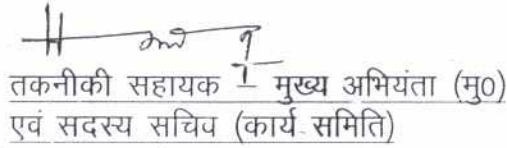 तकनीकी सहायक - मुख्य अभियंता (मु0)
एवं सदस्य सचिव (कार्य समिति)